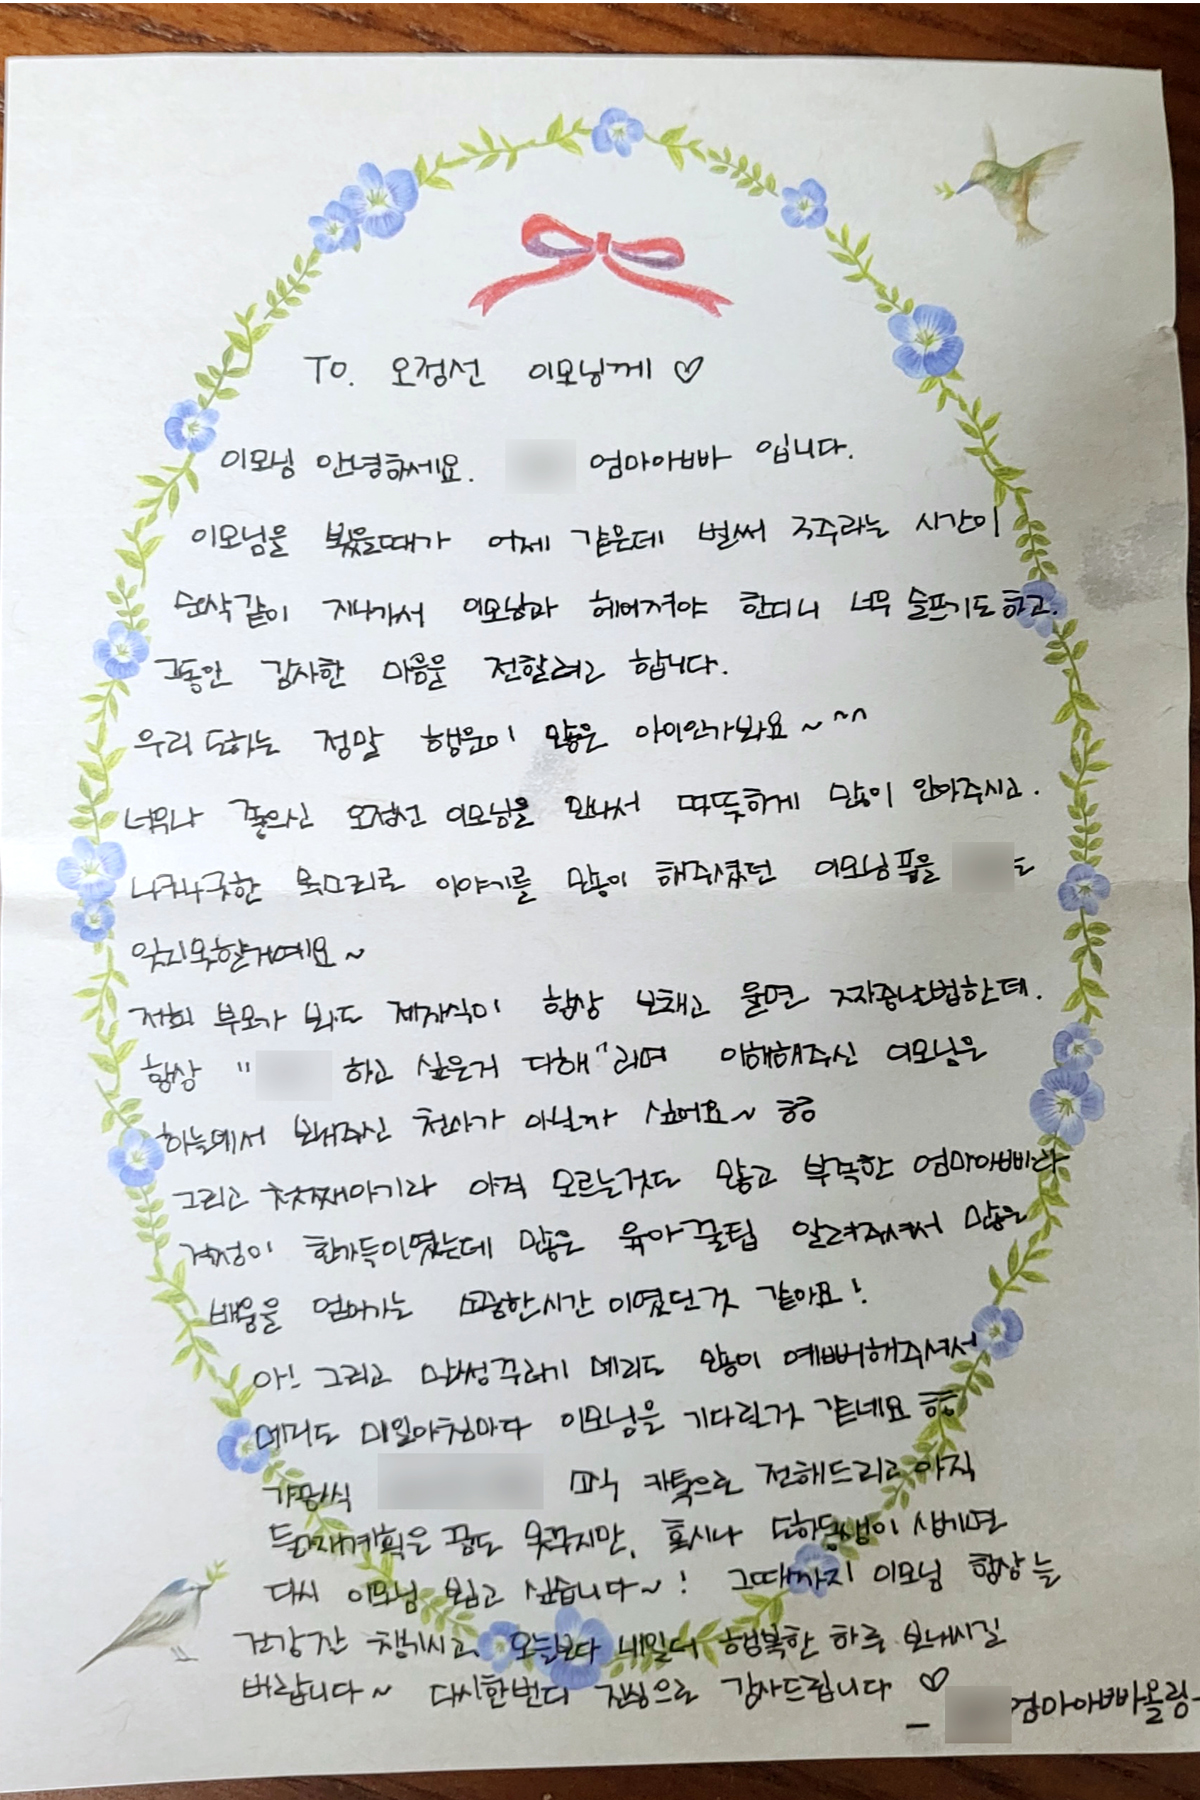 To. 오정선 이모님께 ♡
이모님 안녕하세요. 엄마아빠 입니다.
이모님을 뵜을때가 어제 같은데 벌써 3주라는 시간이
순삭같이 지나가서 이모님과 헤어져야 한다니 너무 슬프기도 하고.
그동안 감사한 마음을 전할려고 합니다.
우리 도하는 정말 행운이 많은 아이인가봐요~^^
너무나 좋으신 오정선 이모님을 만나서 따뜻하게 많이 안아주시고.
나긋나긋한 목소리로 이야기를 많이 해주셨던 이모님품을 도
잊지못할거예요~
저희 부모가 봐도 제자식이 항상 보채고 울면 짜증날법한데.
항상 " 하고 싶은거 다해"라며 이해해주신 이모님은
하늘에서 보내주신 천사가 아닐까 싶어요~ ㅎㅎ
그리고 첫째아기라 아직 모르는것도 많고 부족한 엄마아빠라
걱정이 한가득이였는데 많은 육아꿀팁 알려주셔서 많은
배움을 얻어가는 소중한시간 이였던것 같아요!
아! 그리고 말썽꾸러기 메리도 많이 예뻐해주셔서
메리도 매일아침마다 이모님을 기다릴거 같네요 ㅎㅎ
꼭 카톡으로 전해드리고 아직
둘째계획은 꿈도 못꾸지만, 혹시나 도하동생이 생기면
다시 이모님 뵙고 싶습니다~! 그때까지 이모님 항상 늘
건강잘 챙기시고, 오늘보다 내일더 행복한 하루 보내시길
바랍니다~ 다시한번더 진심으로 감사드립니다 ♡
- 엄마아빠올림-